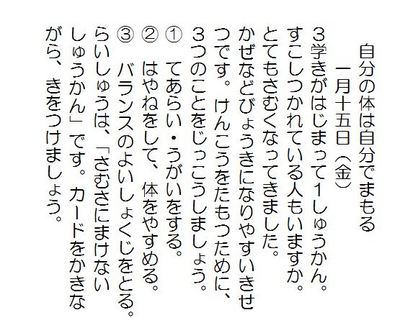 自分の体は自分でまもる
一月十五日（金）
３学きがはじまって１しゅうかん。
すこしつかれている人もいますか。
とてもさむくなってきました。
かぜなどびょうきになりやすいきせ
つです。けんこうをたもつために、
３つのことをじっこうしましょう。
① てあらい・うがいをする。
② はやねをして、体をやすめる。
③ バランスのよいしょくじをとる。
らいしゅうは、「さむさにまけない
しゅうかん」です。カードをかきな
がら、きをつけましょう。